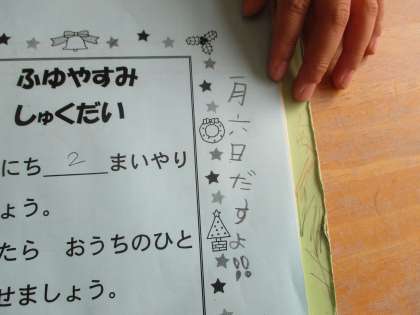 ふゆやすみ
しゅくだい
にち 2 まいやり
ょう。
たら　おうちのひと
せましょう。
一月六日だすよ!!